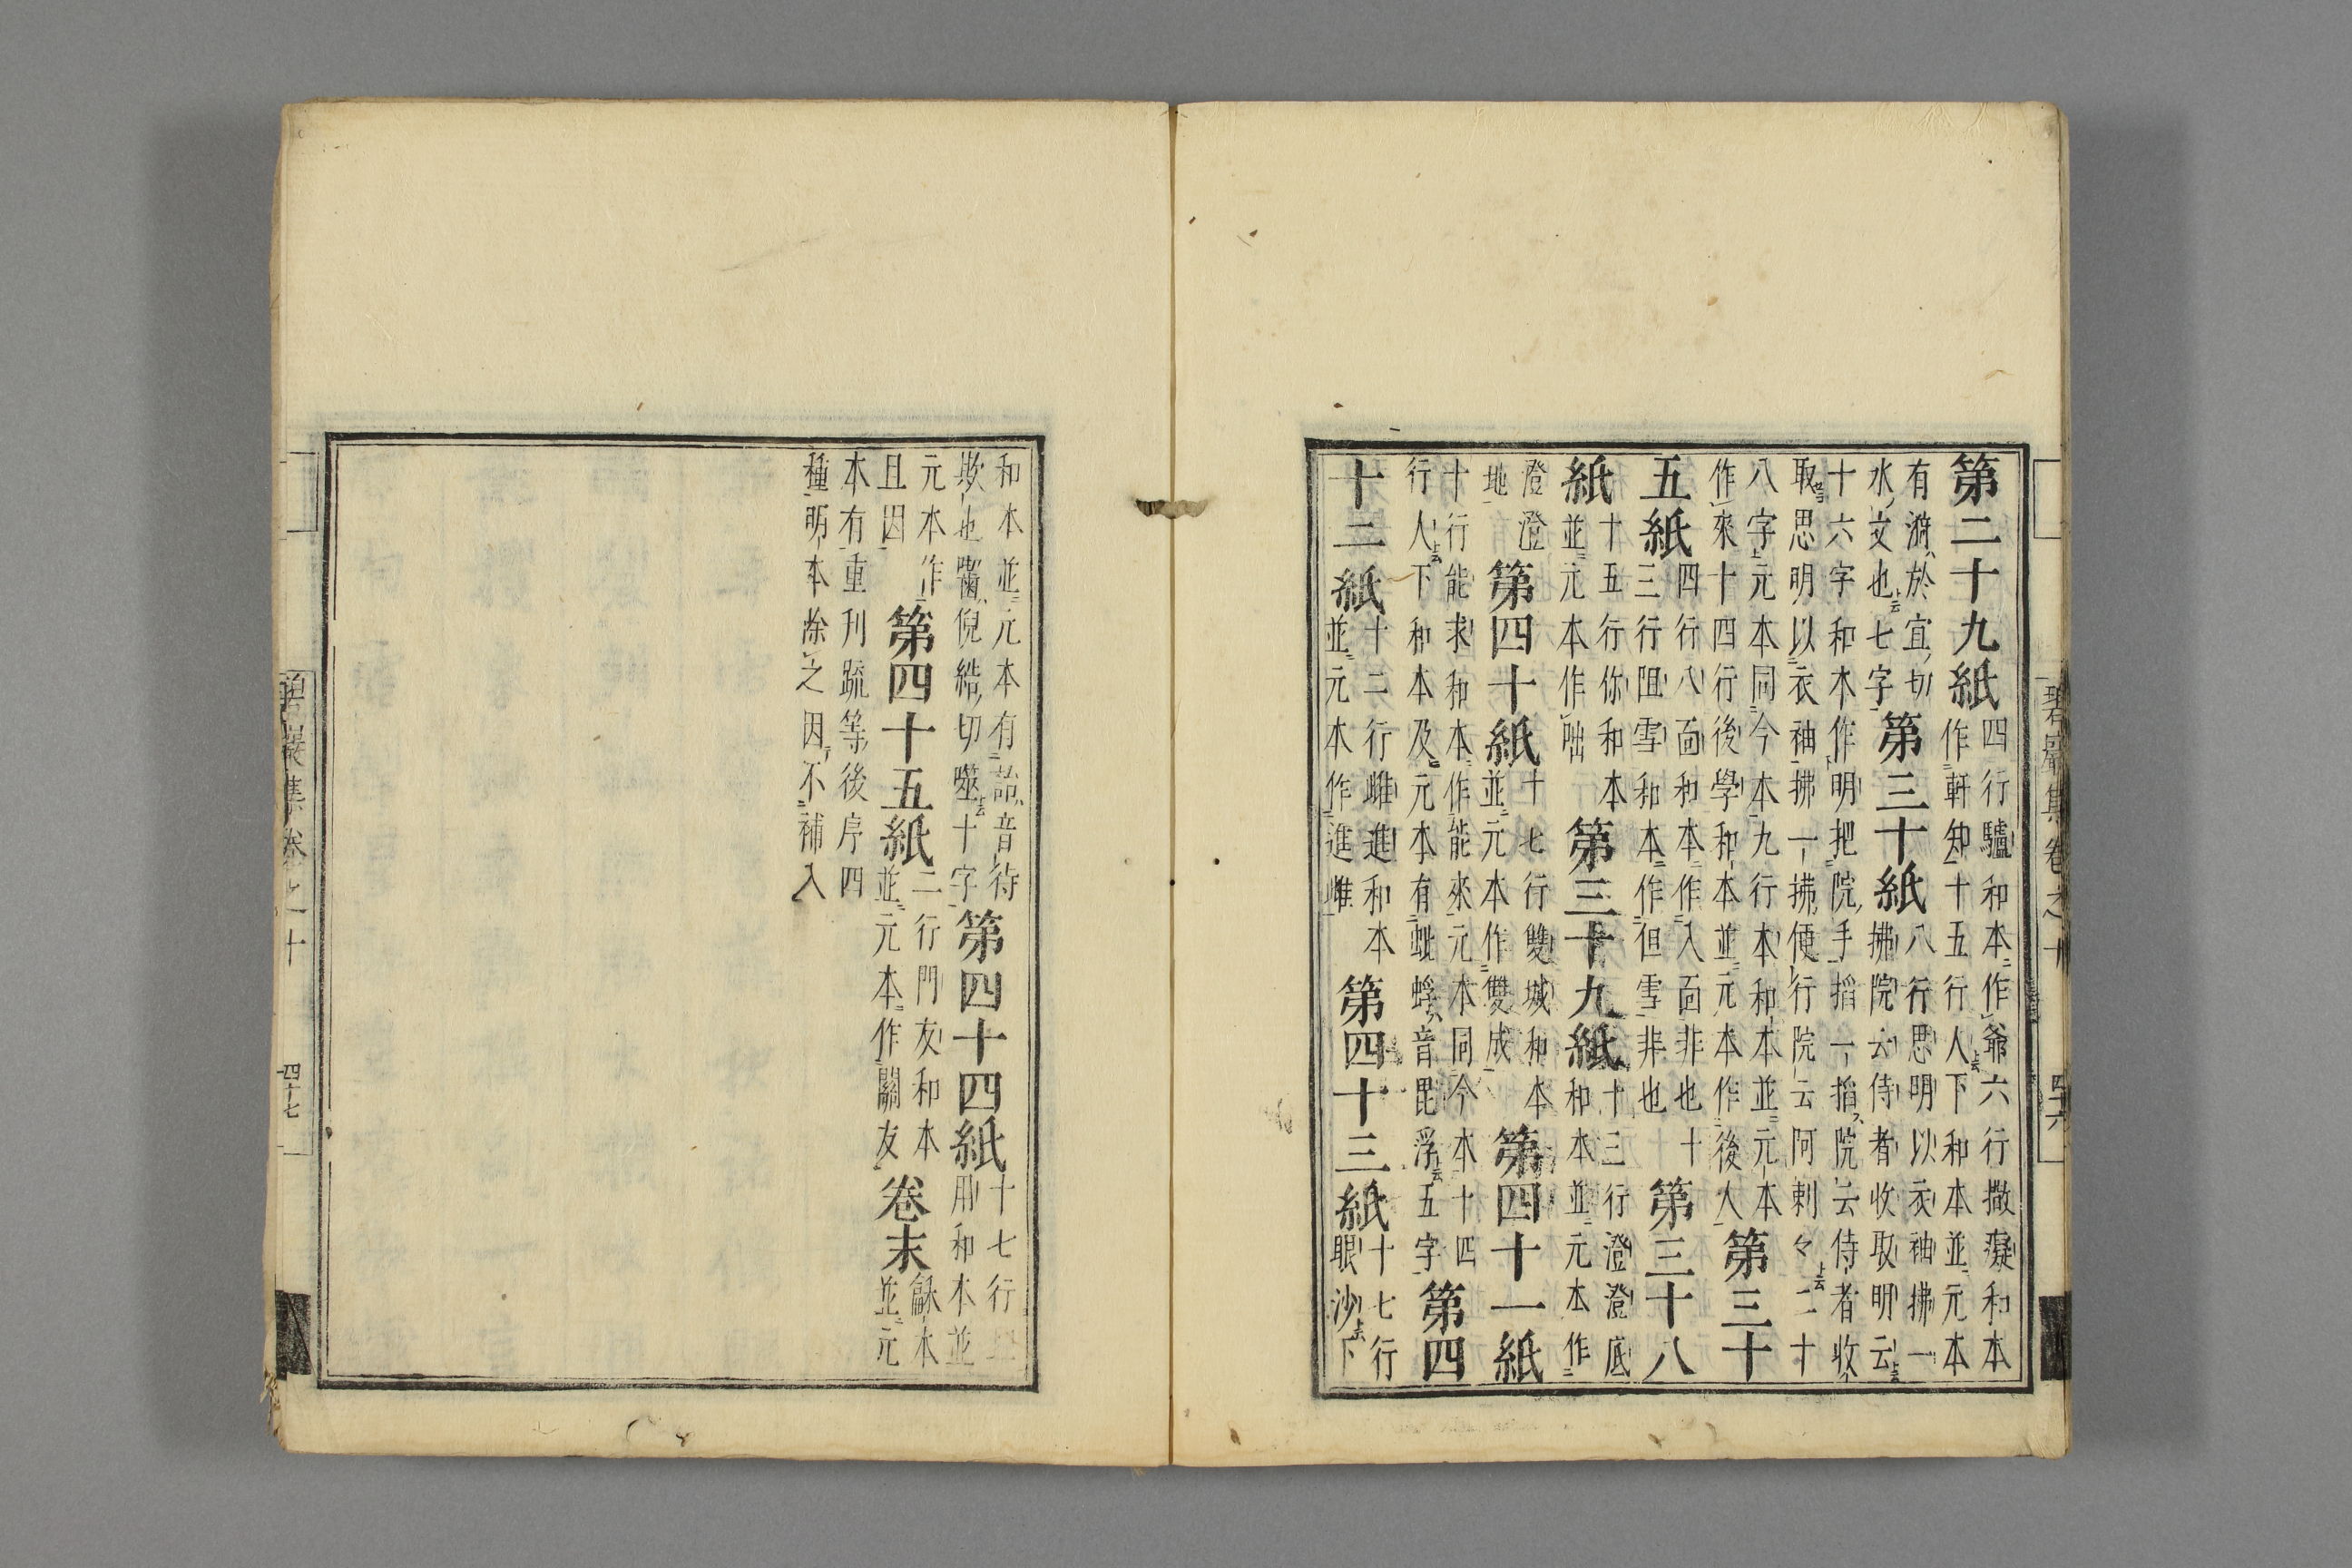 第二十九紙四行驢和本作爺六行撒癡和本作軒知十五行人下和本並元本
有漪於宜切水文也七字第三十紙八行思明以衣袖拂一拂院云侍者收取明云
十六字和本作明把院手搯一搯院云侍者收取思明以衣袖拂一拂便行院云阿剌々二十
八字元本同今本九行本和本並元本作來十四行後學和本並元本作後人第三十
五紙四行八面和本作入面非也十三行阻雪和本作徂雪非也第三十八
紙十五行你和本並元本作咄第三十九紙十三行澄澄底和本並元本作
澄澄地第四十紙十七行雙城和本並元本作雙成第四十一紙
十行能求和本作能來元本同今本十四行人下和本及元本有虵蜉音毘浮五字第四
十二紙十二行雌進和本並元本作進雌第四十三紙十七行眼沙下
碧巖集卷之十
四十六
和本並元本有詒音待欺也齧倪結切噬十字第四十四紙十七行用和本並
元本作且因第四十五紙二行門友和本並元本作關友卷末龢本並元
本有重刊疏等後序四種明本除之因不補入
碧巖集卷之十
四十七